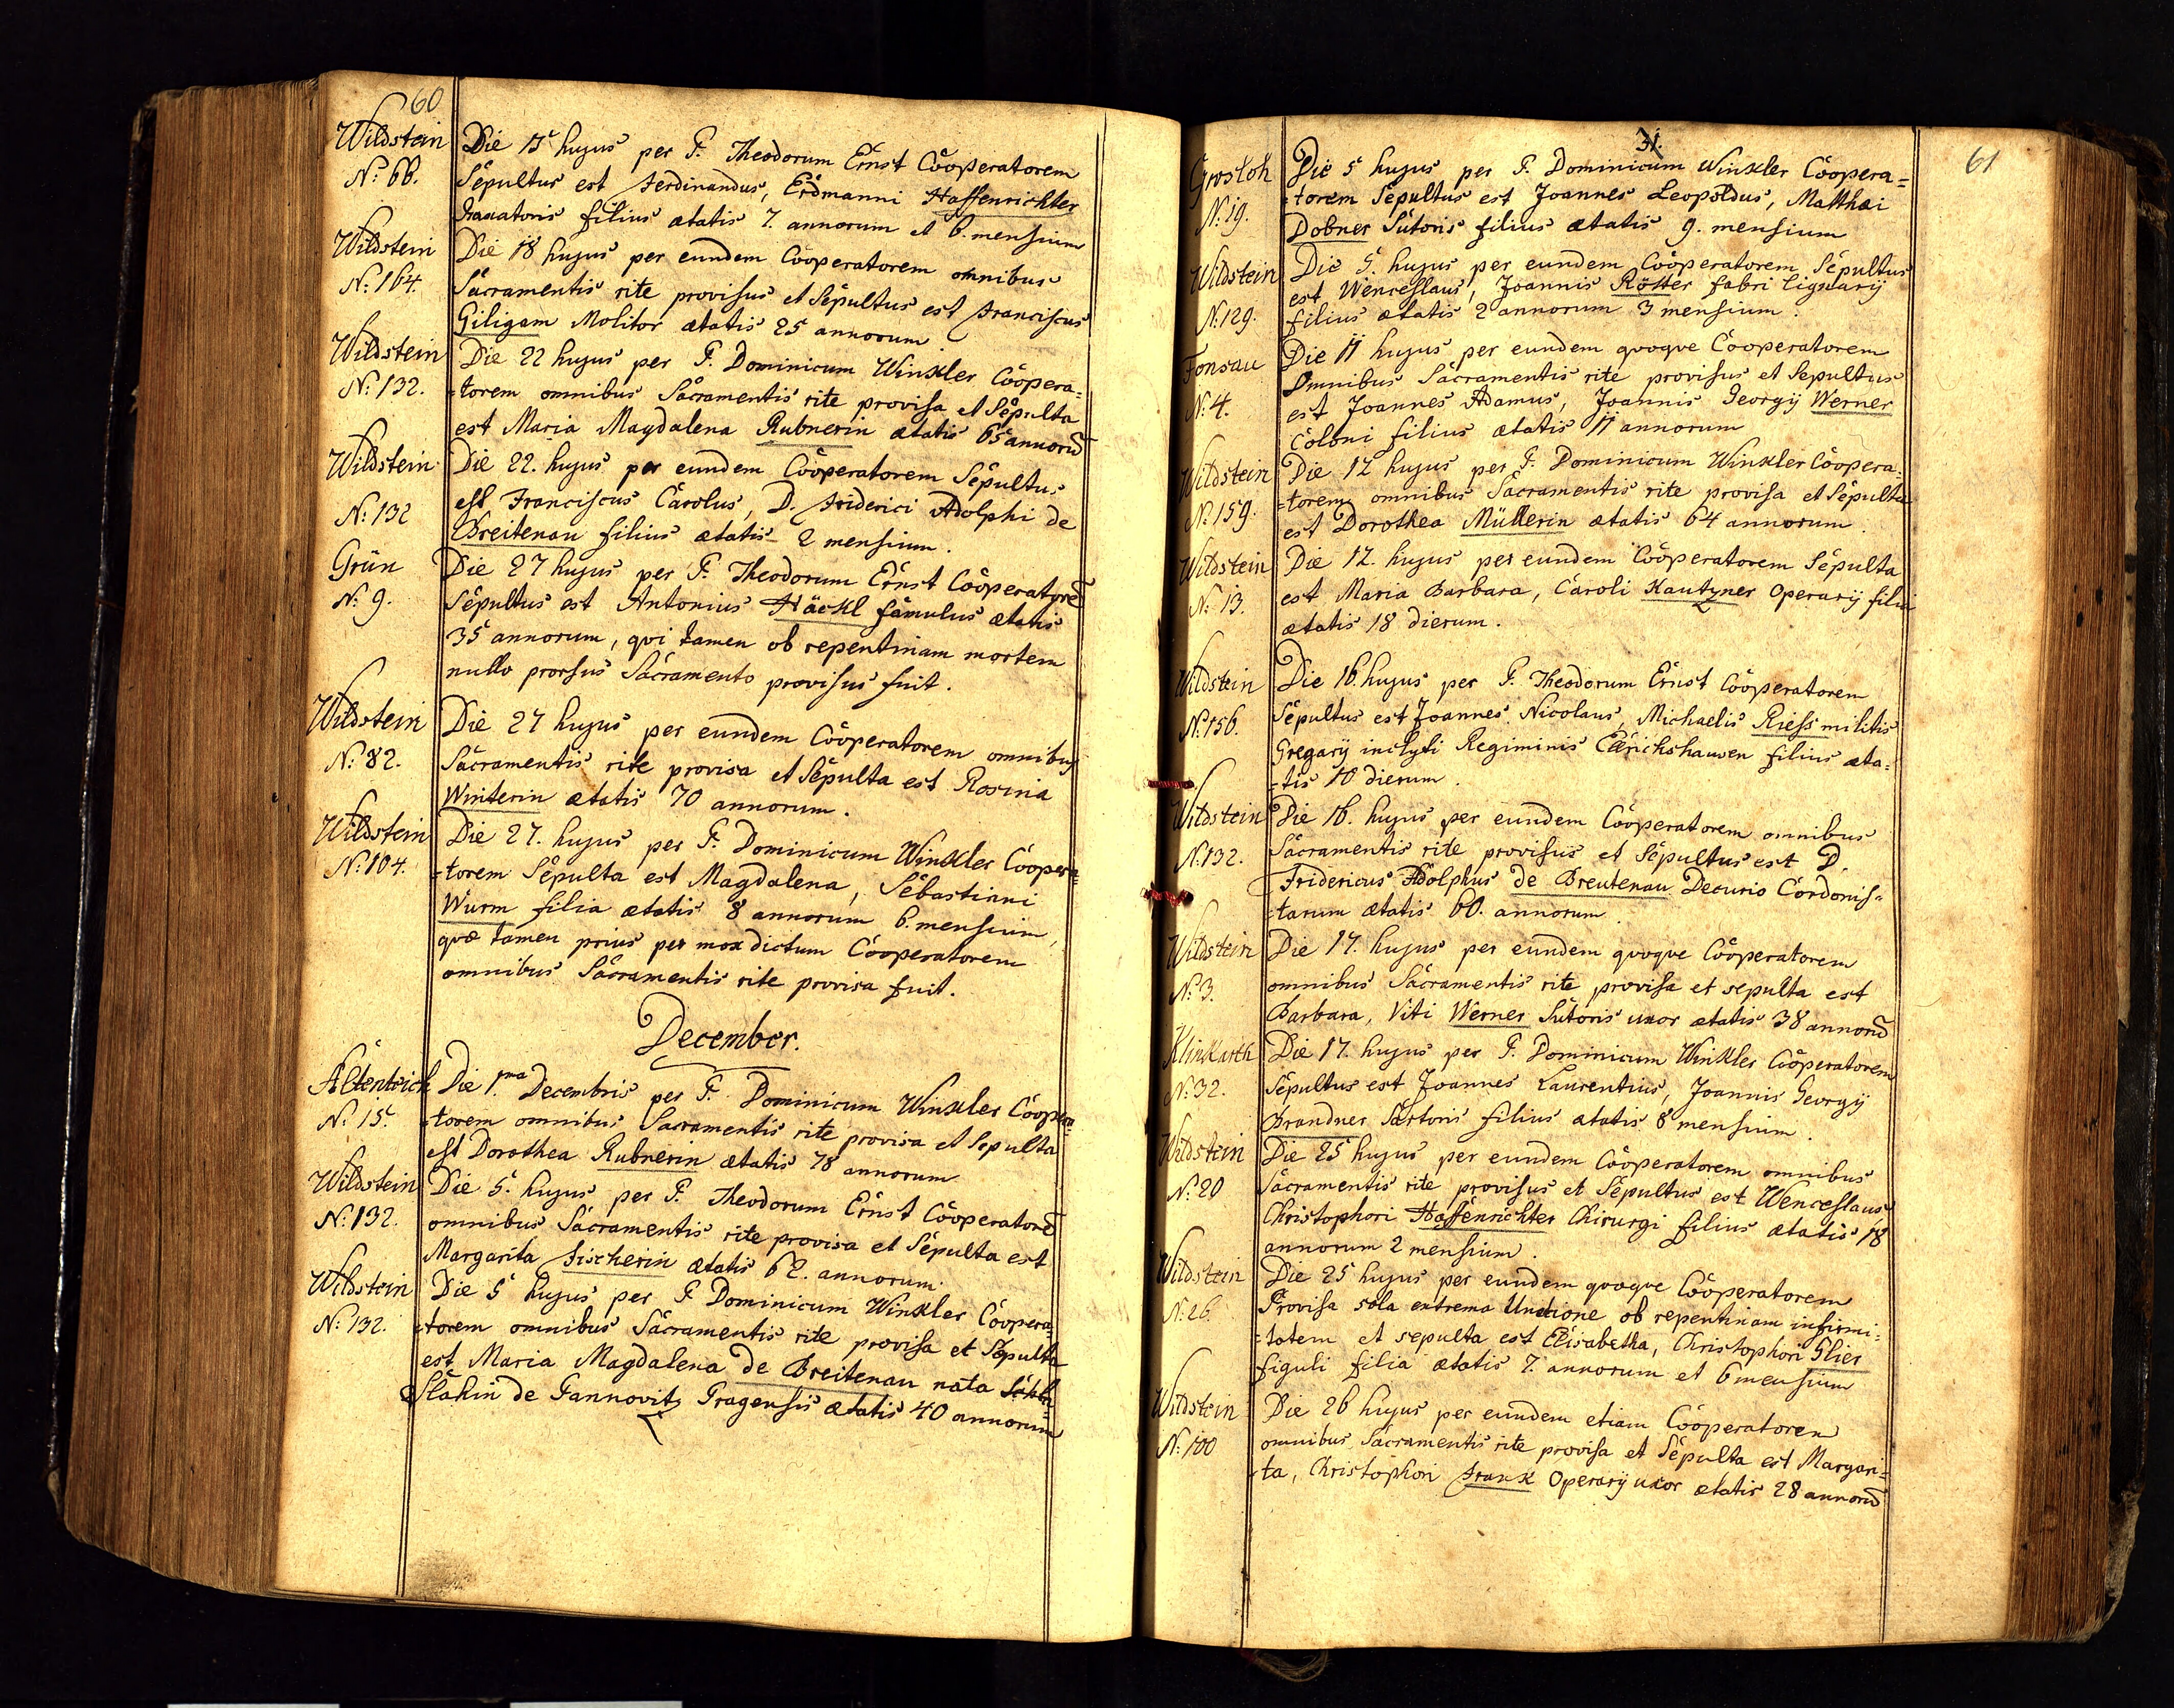 60
Wildstein
N: 66.
Die 15 hujus per P. Theodorum Ernst Cooperatorem
Sepultus est Ferdinandus, Erdmanni Haffenrichter
filius ætatis 7. annorum et 6. mensium
Wildstein
N: 164.
Die 18 hujus per eundem Cooperatorem omnibus
Sacramentis rite provisus et Sepultus est Franciscus
Giligam Molitor ætatis 25 annorum
Wildstein
N: 132.
Die 22 hujus per P. Dominicum Winkler Coopera=
=torem omnibus Sacramentis rite provisa et Sepulta
est Maria Magdalena Rubnerin ætatis 65 annorũ
Wildstein
N: 132
Die 22. hujus per eundem Cooperatorem Sepultus
est Franciscus Carolus, D. Friderici Adolphi de
Breitenau filius ætatis 2 mensium.
Grün
N: 9.
Die 27 hujus per P. Theodorum Ernst Cooperatorẽ
Sepultus est Antonius Häckl famulus ætatis
35 annorum, qvi tamen ob repentinam mortem
nullo prorsus Sacramento provisus fuit.
Wildstein
N: 82.
Die 27 hujus per eundem Cooperatorem omnibus
Sacramentis rite provisa et Sepulta est Rosina
Winterin ætatis 70 annorum.
Wildstein
N: 104.
Die 27. hujus per P. Dominicum Winkler Coopera=
=torem Sepulta est Magdalena, Sebastiani
Wurm filia ætatis 8 annorum 6. mensium,
qvæ tamen prius per mox dictum Cooperatorem
omnibus Sacramentis rite provisa fuit.
December.
Altenteich
N: 15.
Die 1.ma Decembris per P. Dominicum Winkler Coopera=
=torem omnibus Sacramentis rite provisa et Sepulta
est Dorothea Rubnerin ætatis 78 annorum
Wildstein
N: 132.
Die 5. hujus per P. Theodorum Ernst Cooperatorẽ
omnibus Sacramentis rite provisa et Sepulta est
Margarita Fischerin ætatis 62. annorum.
Wildstein
N: 132.
Die 5 hujus per P. Dominicum Winkler Coopera=
=torem omnibus Sacramentis rite provisa et Sepulta
est Maria Magdalena de Breitenau nata
Slákin de Pannovitz Pragensis ætatis 40 annorum
31.
61
Grosloh
N: 19.
Die 5 hujus per P. Dominicum Winkler Coopera=
=torem Sepultus est Joannes Leopoldus, Matthæi
Dobner Sutoris filius ætatis 9. mensium
Wildstein
N: 129.
Die 5. hujus per eundem Cooperatorem Sepultus
est Wenceslaus, Joannis Rötter fabri lignarij
filius ætatis 2 annorum 3 mensium.
Fonsau
N: 4.
Die 11 hujus per eundem qvoqve Cooperatorem
Omnibus Sacramentis rite provisus et Sepultus
est Joannes Adamus, Joannis Georgij Werner
Coloni filius ætatis 11 annorum
Wildstein
N: 159.
Die 12 hujus per P. Dominicum Winkler Coopera=
=torem omnibus Sacramentis rite provisa et Sepulta
est Dorothea Müllerin ætatis 64 annorum.
Wildstein
N: 13.
Die 12. hujus per eundem Cooperatorem Sepulta
est Maria Barbara, Caroli Kautzner Operarij filia
ætatis 18 dierum.
Wildstein
N: 156.
Die 16. hujus per P. Theodorum Ernst Cooperatorem
Sepultus est Joannes Nicolaus, Michaelis Riess militis
Gregarij inclyti Regiminis Elrichshausen filius æta=
=tis 10 dierum.
Wildstein
N: 132.
Die 16. hujus per eundem Cooperatorem omnibus
Sacramentis rite provisus et Sepultus est D.
Fridericus Adolphus de Breutenau Decurio Cordonis=
=tarum ætatis 60. annorum.
Wildstein
N: 3.
Die 17. hujus per eundem qvoqve Cooperatorem
omnibus Sacramentis rite provisa et sepulta est
Barbara, Viti Werner Sutoris uxor ætatis 38 annorũ
Klinkarth
N: 32.
Die 17. hujus per P. Dominicum Winkler Cooperatorem
Sepultus est Joannes Laurentius, Joannis Georgij
Brandner Sartoris filius ætatis 8 mensium.
Wildstein
N: 20
Die 25 hujus per eundem Cooperatorem omnibus
Sacramentis rite provisus et Sepultus est Wenceslaus
Christophori Haffenrichter Chirurgi filius ætatis 18
annorum 2 mensium.
Wildstein
N: 26.
Die 25 hujus per eundem qvoqve Cooperatorem
Provisa sola extrema Unctione ob repentinam infirmi=
=tatem et sepulta est Elisabetha, Christophori Glier
figuli filia ætatis 7. annorum et 6 mensium
Wildstein
N: 100
Die 26 hujus per eundem etiam Cooperatorem
omnibus Sacramentis rite provisa et Sepulta est Margari=
=ta, Christophori Frank Operarij uxor ætatis 28 annorũ